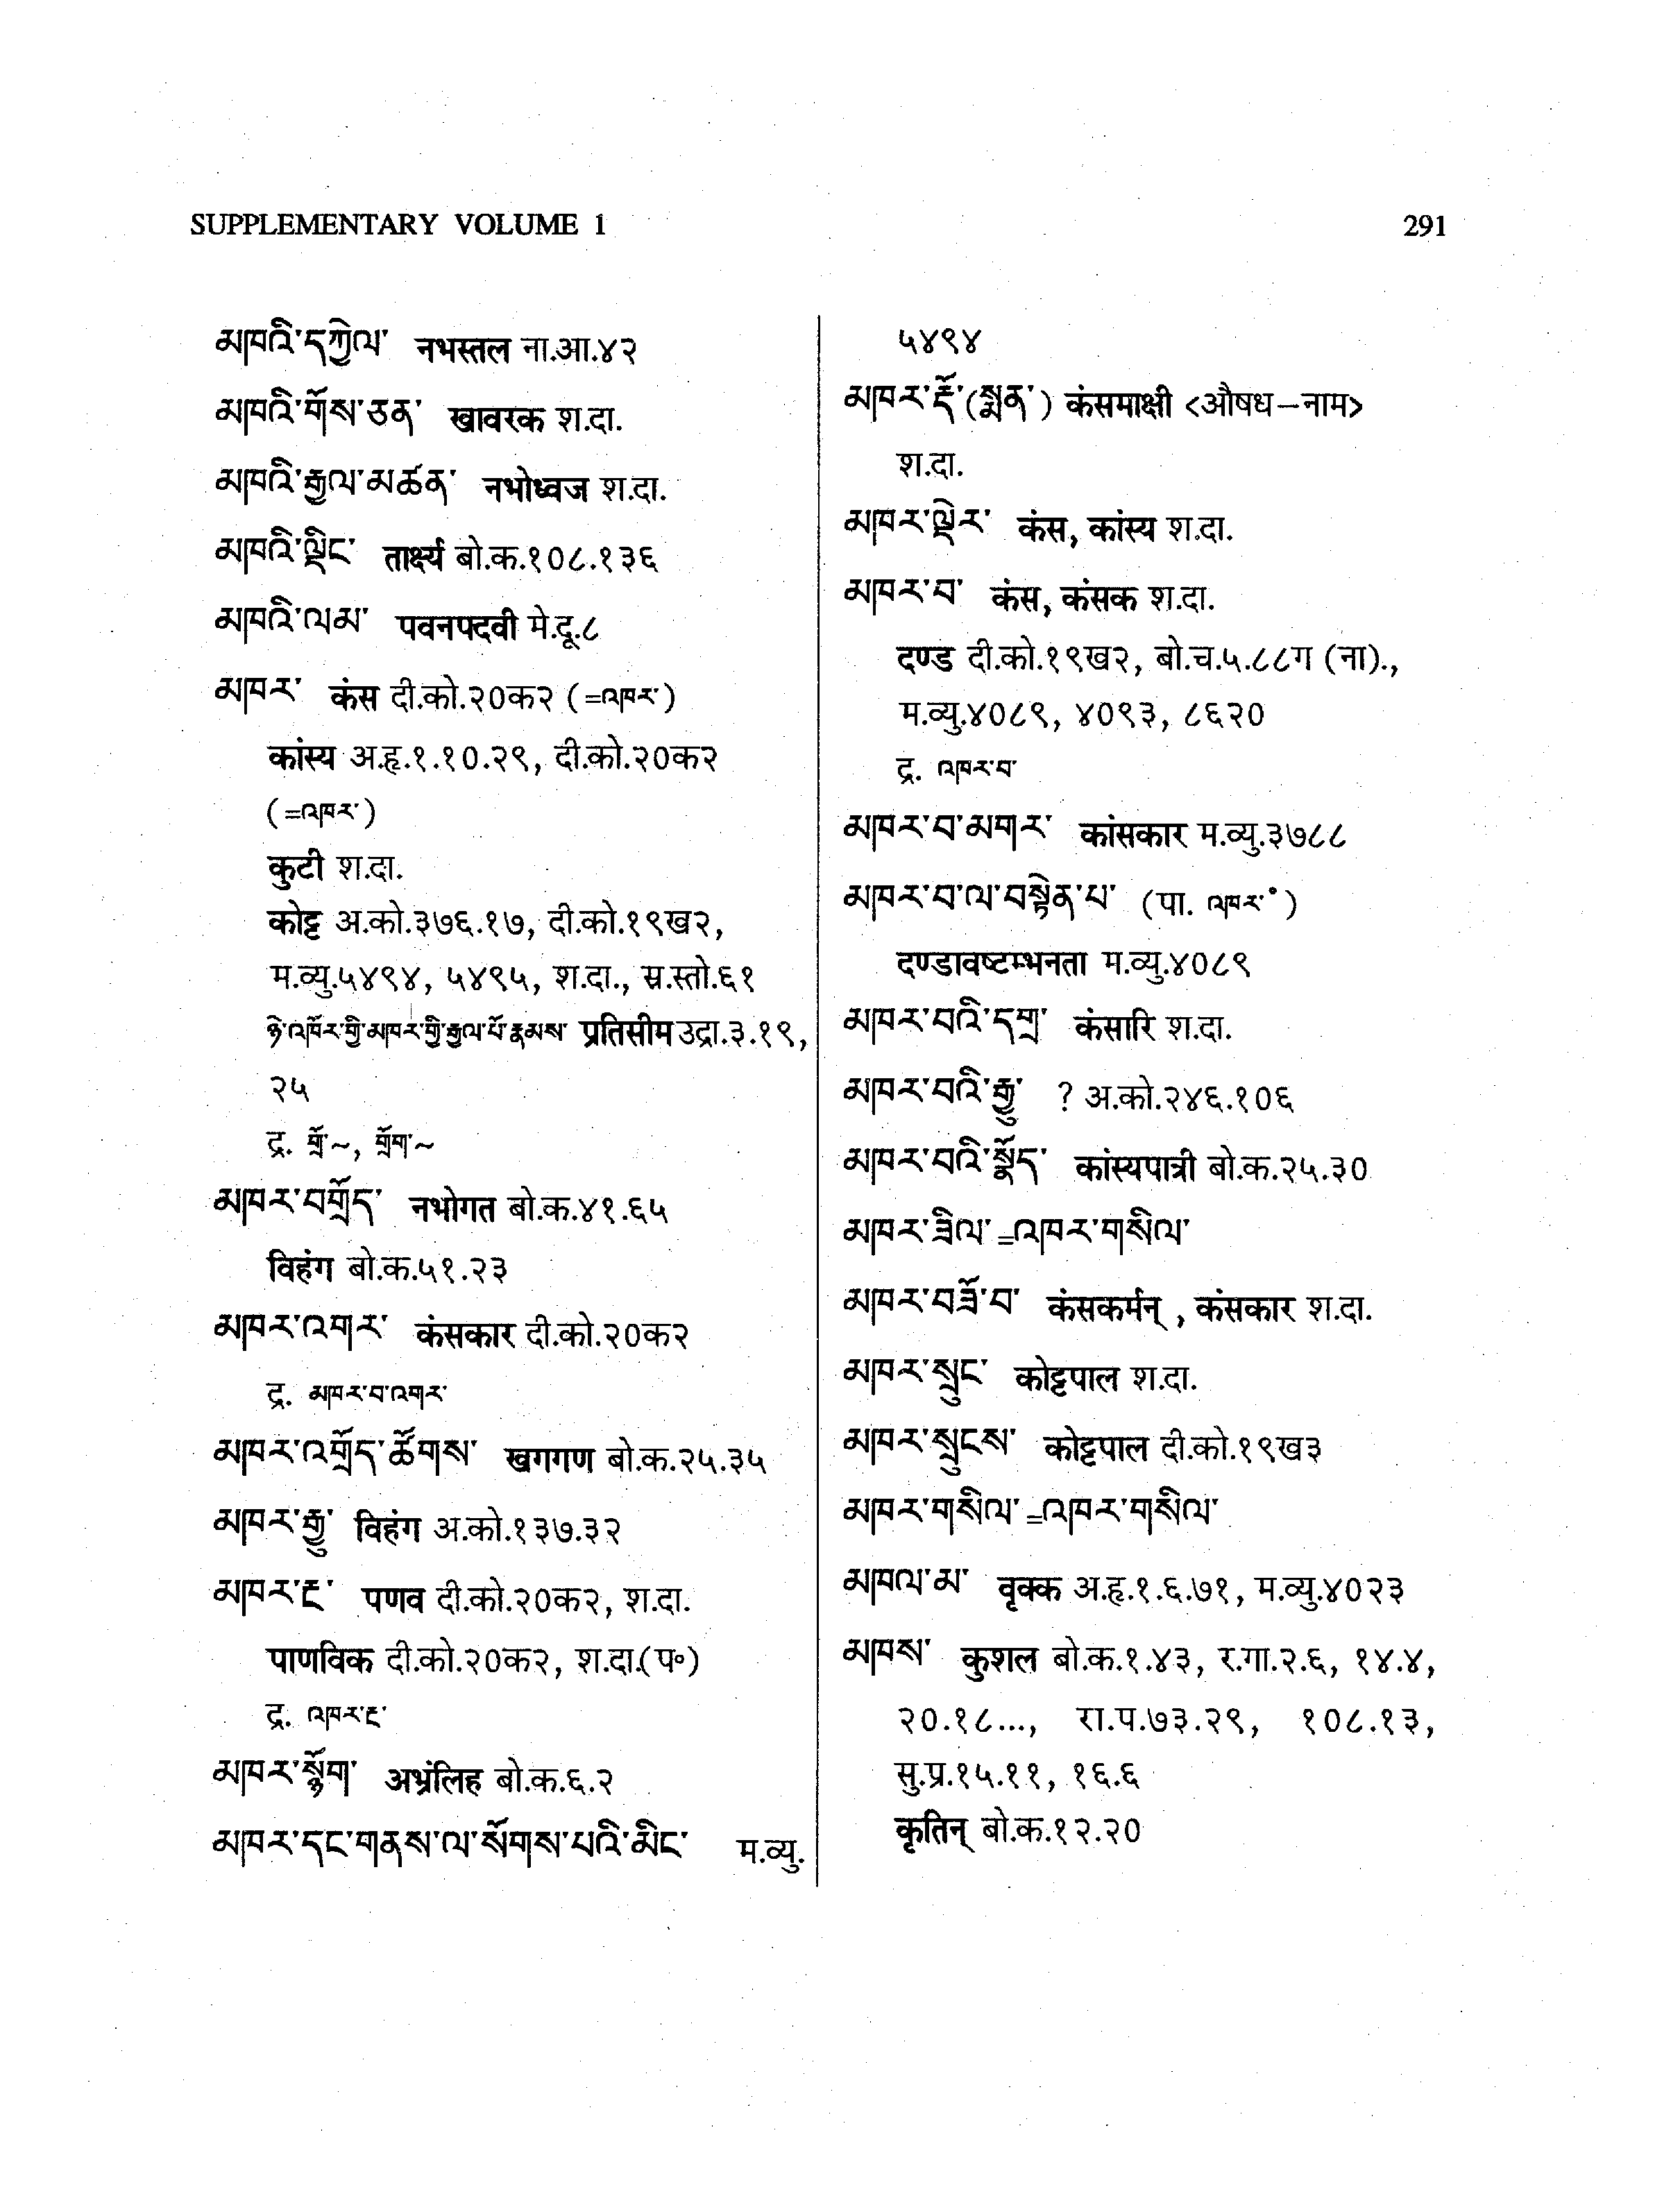 SUPPLEMENTARY VOLUME 1
291
མཁའི་དཀྱེལ་ नभस्तल ना.आ.४२
མཁའི་གོས་ཅན་ खावरक श.दा.
མཁའི་རྒྱལ་མཚན་ नभोध्वज श.दा.
མཁའི་ལྡིང་ तार्क्ष्य बो.क.१०८.१३६
མཁའི་ལམ་ पवनपदवी मे.दू.८
མཁར་ कंस दी.को.२०क२ (=འཁར་)
कांस्य अ.हृ.१.१०.२९, दी.को.२०क२
(=འཁར་)
कुटी श.दा.
कोट्ट अ.को.३७६.१७, दी.को.१९ख२,
म.व्यु.५४९४, ५४९५, श.दा., स्र.स्तो.६१
ཉེ་འཁོར་གྱི་མཁར་གྱི་རྒྱལ་པོ་རྣམས་ प्रतिसीम उद्रा.३.१९,
२५
द्र. གྲོ་~, གྲོག་~
མཁར་བགྲོད་ नभोगत बो.क.४१.६५
विहंग बो.क.५१.२३
མཁར་འགར་ कंसकार दी.को.२०क२
द्र. མཁར་བ་འགར་
མཁར་འགྲོད་ཚོགས་ खगगण बो.क.२५.३५
མཁར་རྒྱུ་ विहंग अ.को.१३७.३२
མཁར་རྔ་ पणव दी.को.२०क२, श.दा.
पाणविक दी.को.२०क२, श.दा.(प॰)
द्र. འཁར་རྔ་
མཁར་སྙོག་ अभ्रंलिह बो.क.६.२
མཁར་དང་གནས་ལ་སོགས་པའི་མིང་ म.व्यु.
५४९४
མཁར་རྡོ་(སྨན་) कंसमाक्षी <औषध–नाम>
श.दा.
མཁར་ལྡེར་ कंस, कांस्य श.दा.
མཁར་བ་ कंस, कंसक श.दा.
दण्ड दी.को.१९ख२, बो.च.५.८८ग (ना).,
म.व्यु.४०८९, ४०९३, ८६२०
द्र. འཁར་བ་
མཁར་བ་མགར་ कांसकार म.व्यु.३७८८
མཁར་བ་ལ་བསྟེན་པ་ (पा. འཁར་॰)
दण्डावष्टम्भनता म.व्यु.४०८९
མཁར་བའི་དགྲ་ कंसारि श.दा.
མཁར་བའི་རྒྱུ་ ? अ.को.२४६.१०६
མཁར་བའི་སྣོད་ कांस्यपात्री बो.क.२५.३०
མཁར་ཟིལ་=འཁར་གསིལ་
མཁར་བཟོ་བ་ कंसकर्मन् , कंसकार श.दा.
མཁར་སྲུང་ कोट्टपाल श.दा.
མཁར་སྲུངས་ कोट्टपाल दी.को.१९ख३
མཁར་གསིལ་=འཁར་གསིལ་
མཁལ་མ་ वृक्क अ.हृ.१.६.७१, म.व्यु.४०२३
མཁས་ कुशल बो.क.१.४३, र.गा.२.६, १४.४,
२०.१८..., रा.प.७३.२९, १०८.१३,
सु.प्र.१५.११, १६.६
कृतिन् बो.क.१२.२०